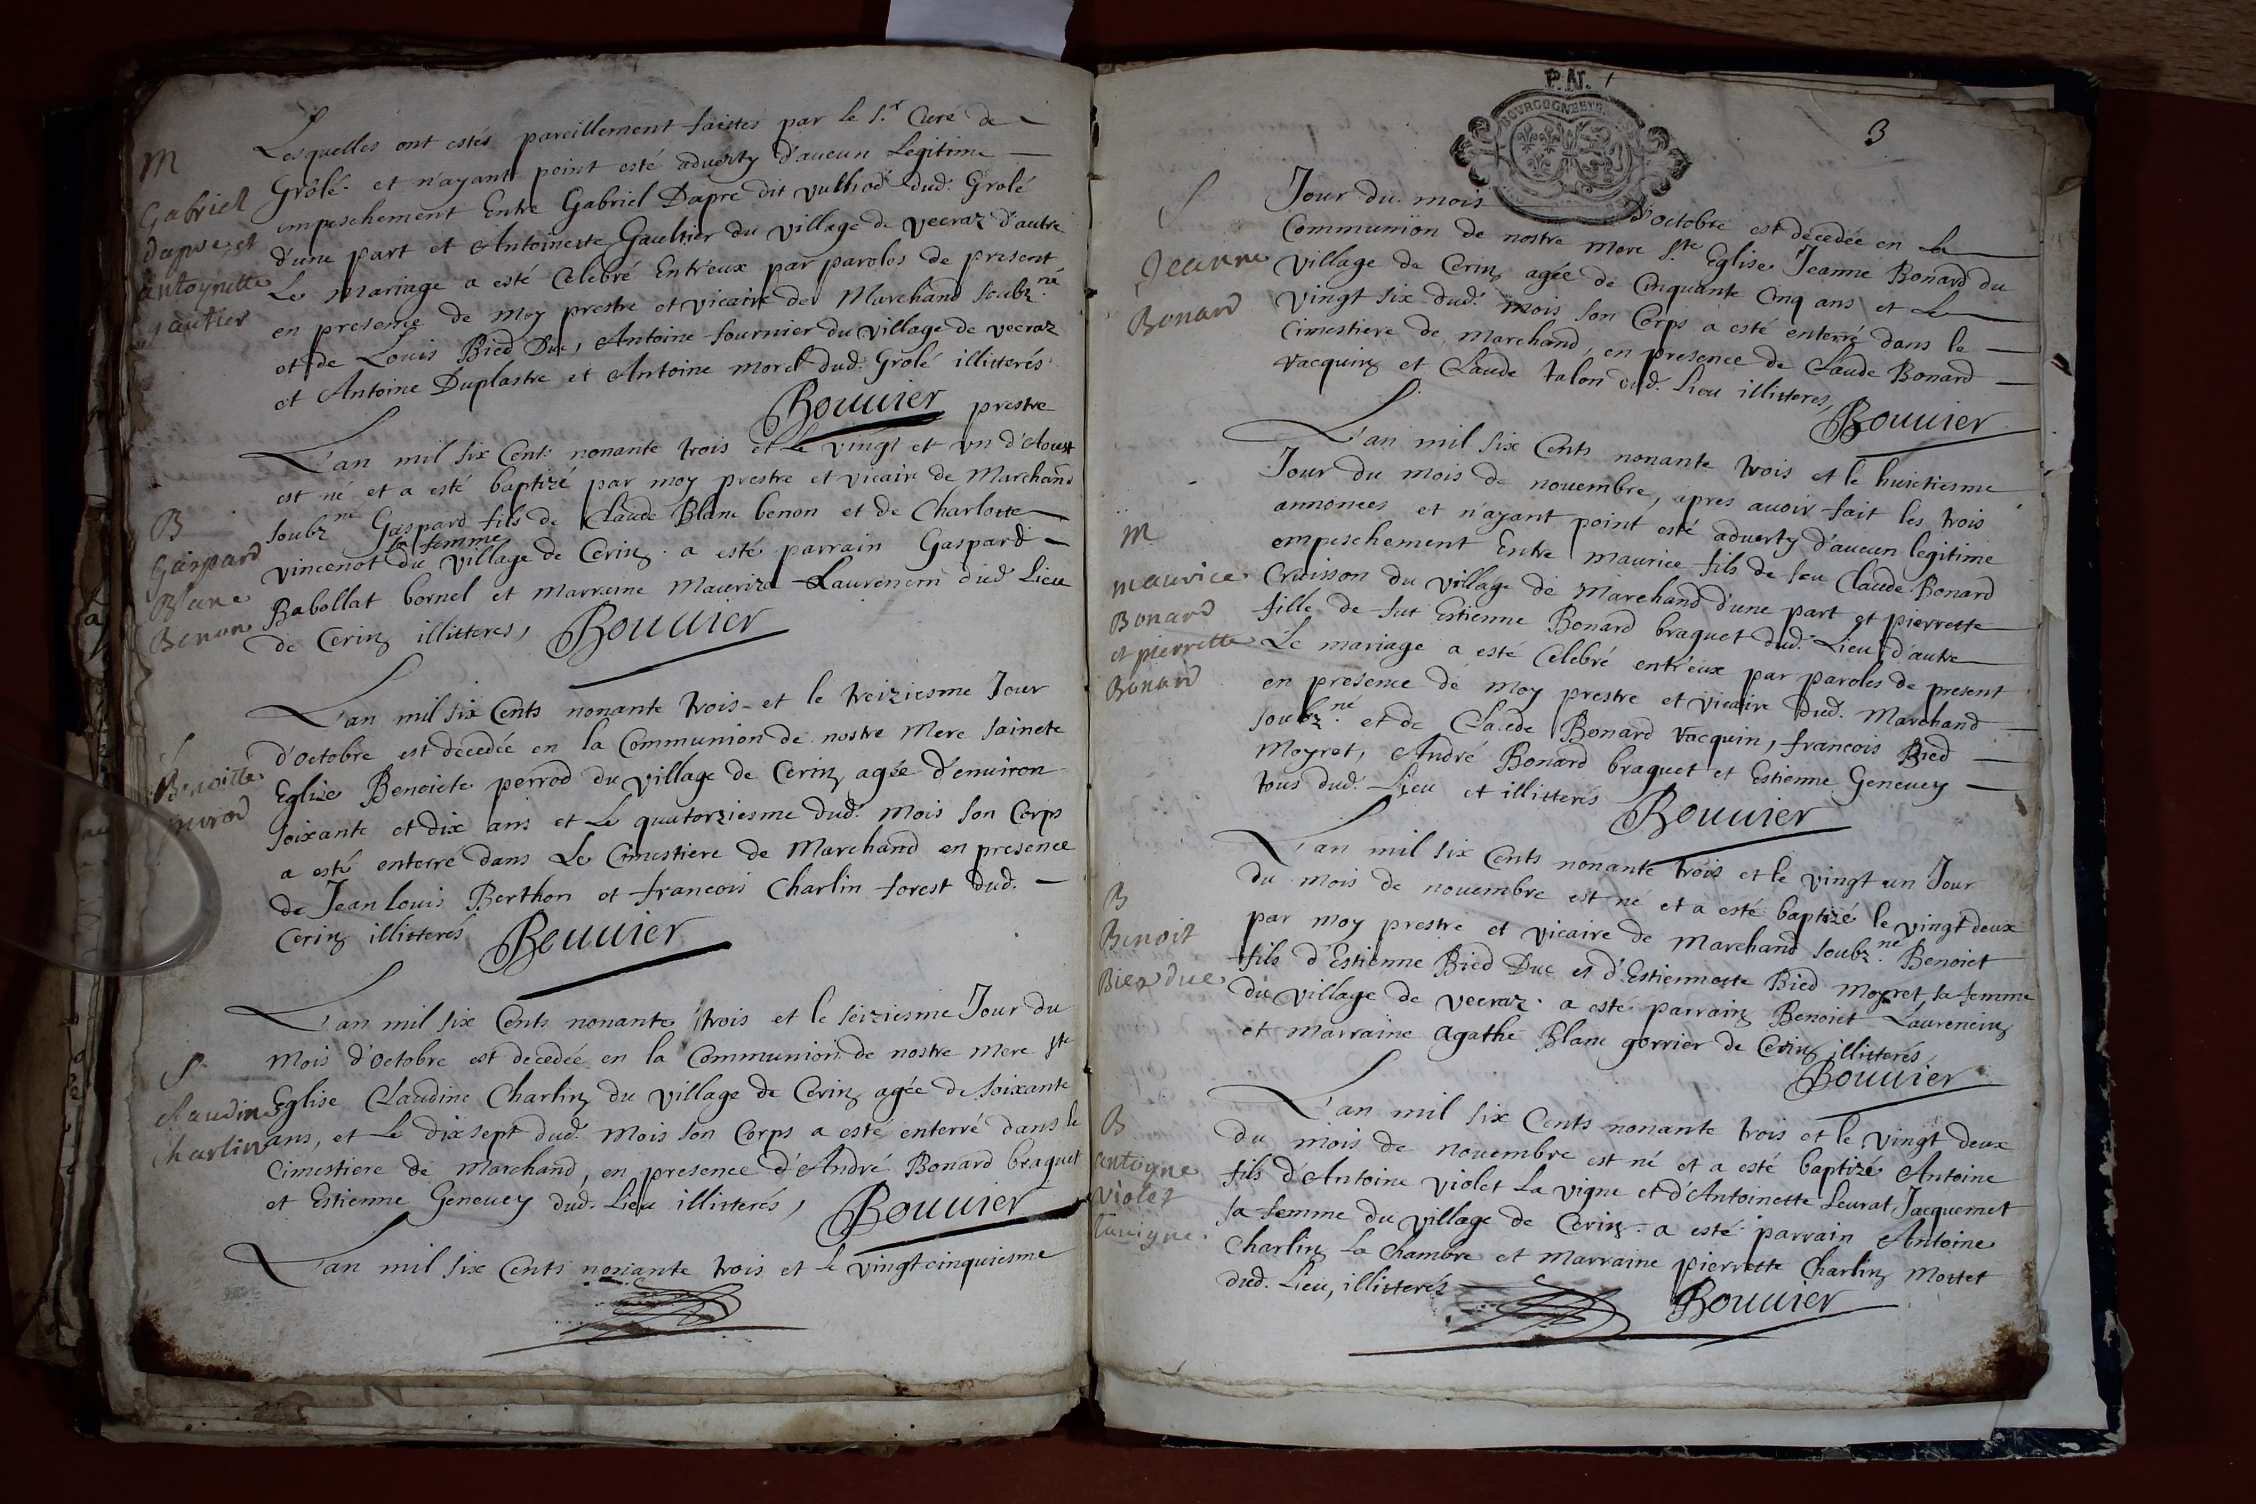 Lesquelles ont estés pareillement faittes par le Sr. Curé de
M
Grôlé. et n'ayant point esté adverty d'aucun Legitime
Gabriel
empeschement Entre Gabriel Dapre dit vulliod dud. Grolé
dapre et
d'une part et Antoinette Gaultier du village de veeraz d'autre
antoynette
Le Mariage a esté Celebré Entreux par paroles de present
gautier
en presence de moy prestre et vicaire de Marchand soubz.né
et de Louis Bied Duc, Antoine fournier du village de veeraz
et Antoine Duplastre et Antoine morel dud. Grolé illitterés
Bouuier prestre
L'an mil six Cents nonante trois et Le vingt et vn d'Aoust
est né et a esté baptizé par moy prestre et vicaire de Marchand
B
soubz né Gaspard fils de Claude Blanc benon et de Charlotte
sa femme
Gaspard
vincenot du village de Cerin. a esté parrain Gaspard
Blanc
Babollat bornel et marraine Maurize Laurencin dud Lieu
Benon
de Cerin illitteres, Bouuier
L'an mil six Cents nonante trois et le treiziesme Jour
S
d'octobre est decedée en la Communion de nostre Mere saincte
Benoitte
Eglise Benoicte perrod du village de Cerin agée d'environ
perrod
soixante et dix ans et Le quatorziesme dud. Mois son Corps
a esté enterré dans Le Cimestiere de Marchand en presence
de Jean Louis Berthon et francois Charlin forest dud.
Cerin illitterés Bouuier
L'an mil six Cents nonante trois et le seiziesme Jour du
Mois d'octobre est decedée en la Communion de nostre mere ste
S
Eglise Claudine Charlin du village de Cerin agée de soixante
claudine
ans, et Le dix sept dud. Mois son Corps a esté enterré dans le
charlin
Cimestiere de Marchand, en presence d'André Bonard braquet
et Estienne Geneuey dud. Lieu illitterés, Bouuier
L'an mil six Cents nonante trois et le vingt cinquiesme
P.N.
BOURGOGNE
3
S
Jour du mois d'octobre est decedée en La
Communion de nostre mere ste Eglise Jeanne Bonard du
Jeanne
village de Cerin agée de Cinquante Cinq ans et Le
Bonard
vingt six dud. mois son Corps a esté enterré dans le
Cimestiere de Marchand, en presence de Claude Bonard
vacquin et Claude talon dud. Lieu illitteres, Bouuier
L'an mil six Cents nonante trois et le huictiesme
Jour du mois de nouembre, apres auoir fait les trois
annonces et n'ayant point esté aduerty d'aucun legitime
M
empeschement Entre maurice fils de feu Claude Bonard
maurice
Cruisson du village de Marchand d'une part et pierrette
Bonard
fille de fut Estienne Bonard braquet dud. Lieu d'autre
et pierrette
Le mariage a esté Celebré entreux par paroles de present
Bonard
en presence de moy prestre et vicaire dud. Marchand
soubz.né et de Claude Bonard vacquin, francois Bied
Moyret, André Bonard braquet et Estienne Geneuey
tous dud. Lieu et illitterés Bouuier
L'an mil six Cents nonante trois et le vingt un Jour
B
du mois de nouembre est né et a esté baptizé le vingt deux
Benoit
par moy prestre et vicaire de Marchand soubz.né Benoict
Bied duc
fils d'Estienne Bied Duc et d'Estiennette Bied moyret sa femme
du village de veeraz. a esté parrain Benoict Laurencin
et marraine Agathe Blanc gorrier de Cerin illitterés
Bouuier
L'an mil six Cents nonante trois et le vingt deux
B
du mois de nouembre est né et a esté baptizé Antoine
antoyne
fils d'Antoine violet La vigne et d'Antoinette Leurat Jacquemet
violet
sa femme du village de Cerin. a esté parrain Antoine
lauigne.
Charlin La Chambre et marraine pierrette Charlin Mottet
dud. Lieu, illitterés Bouuier